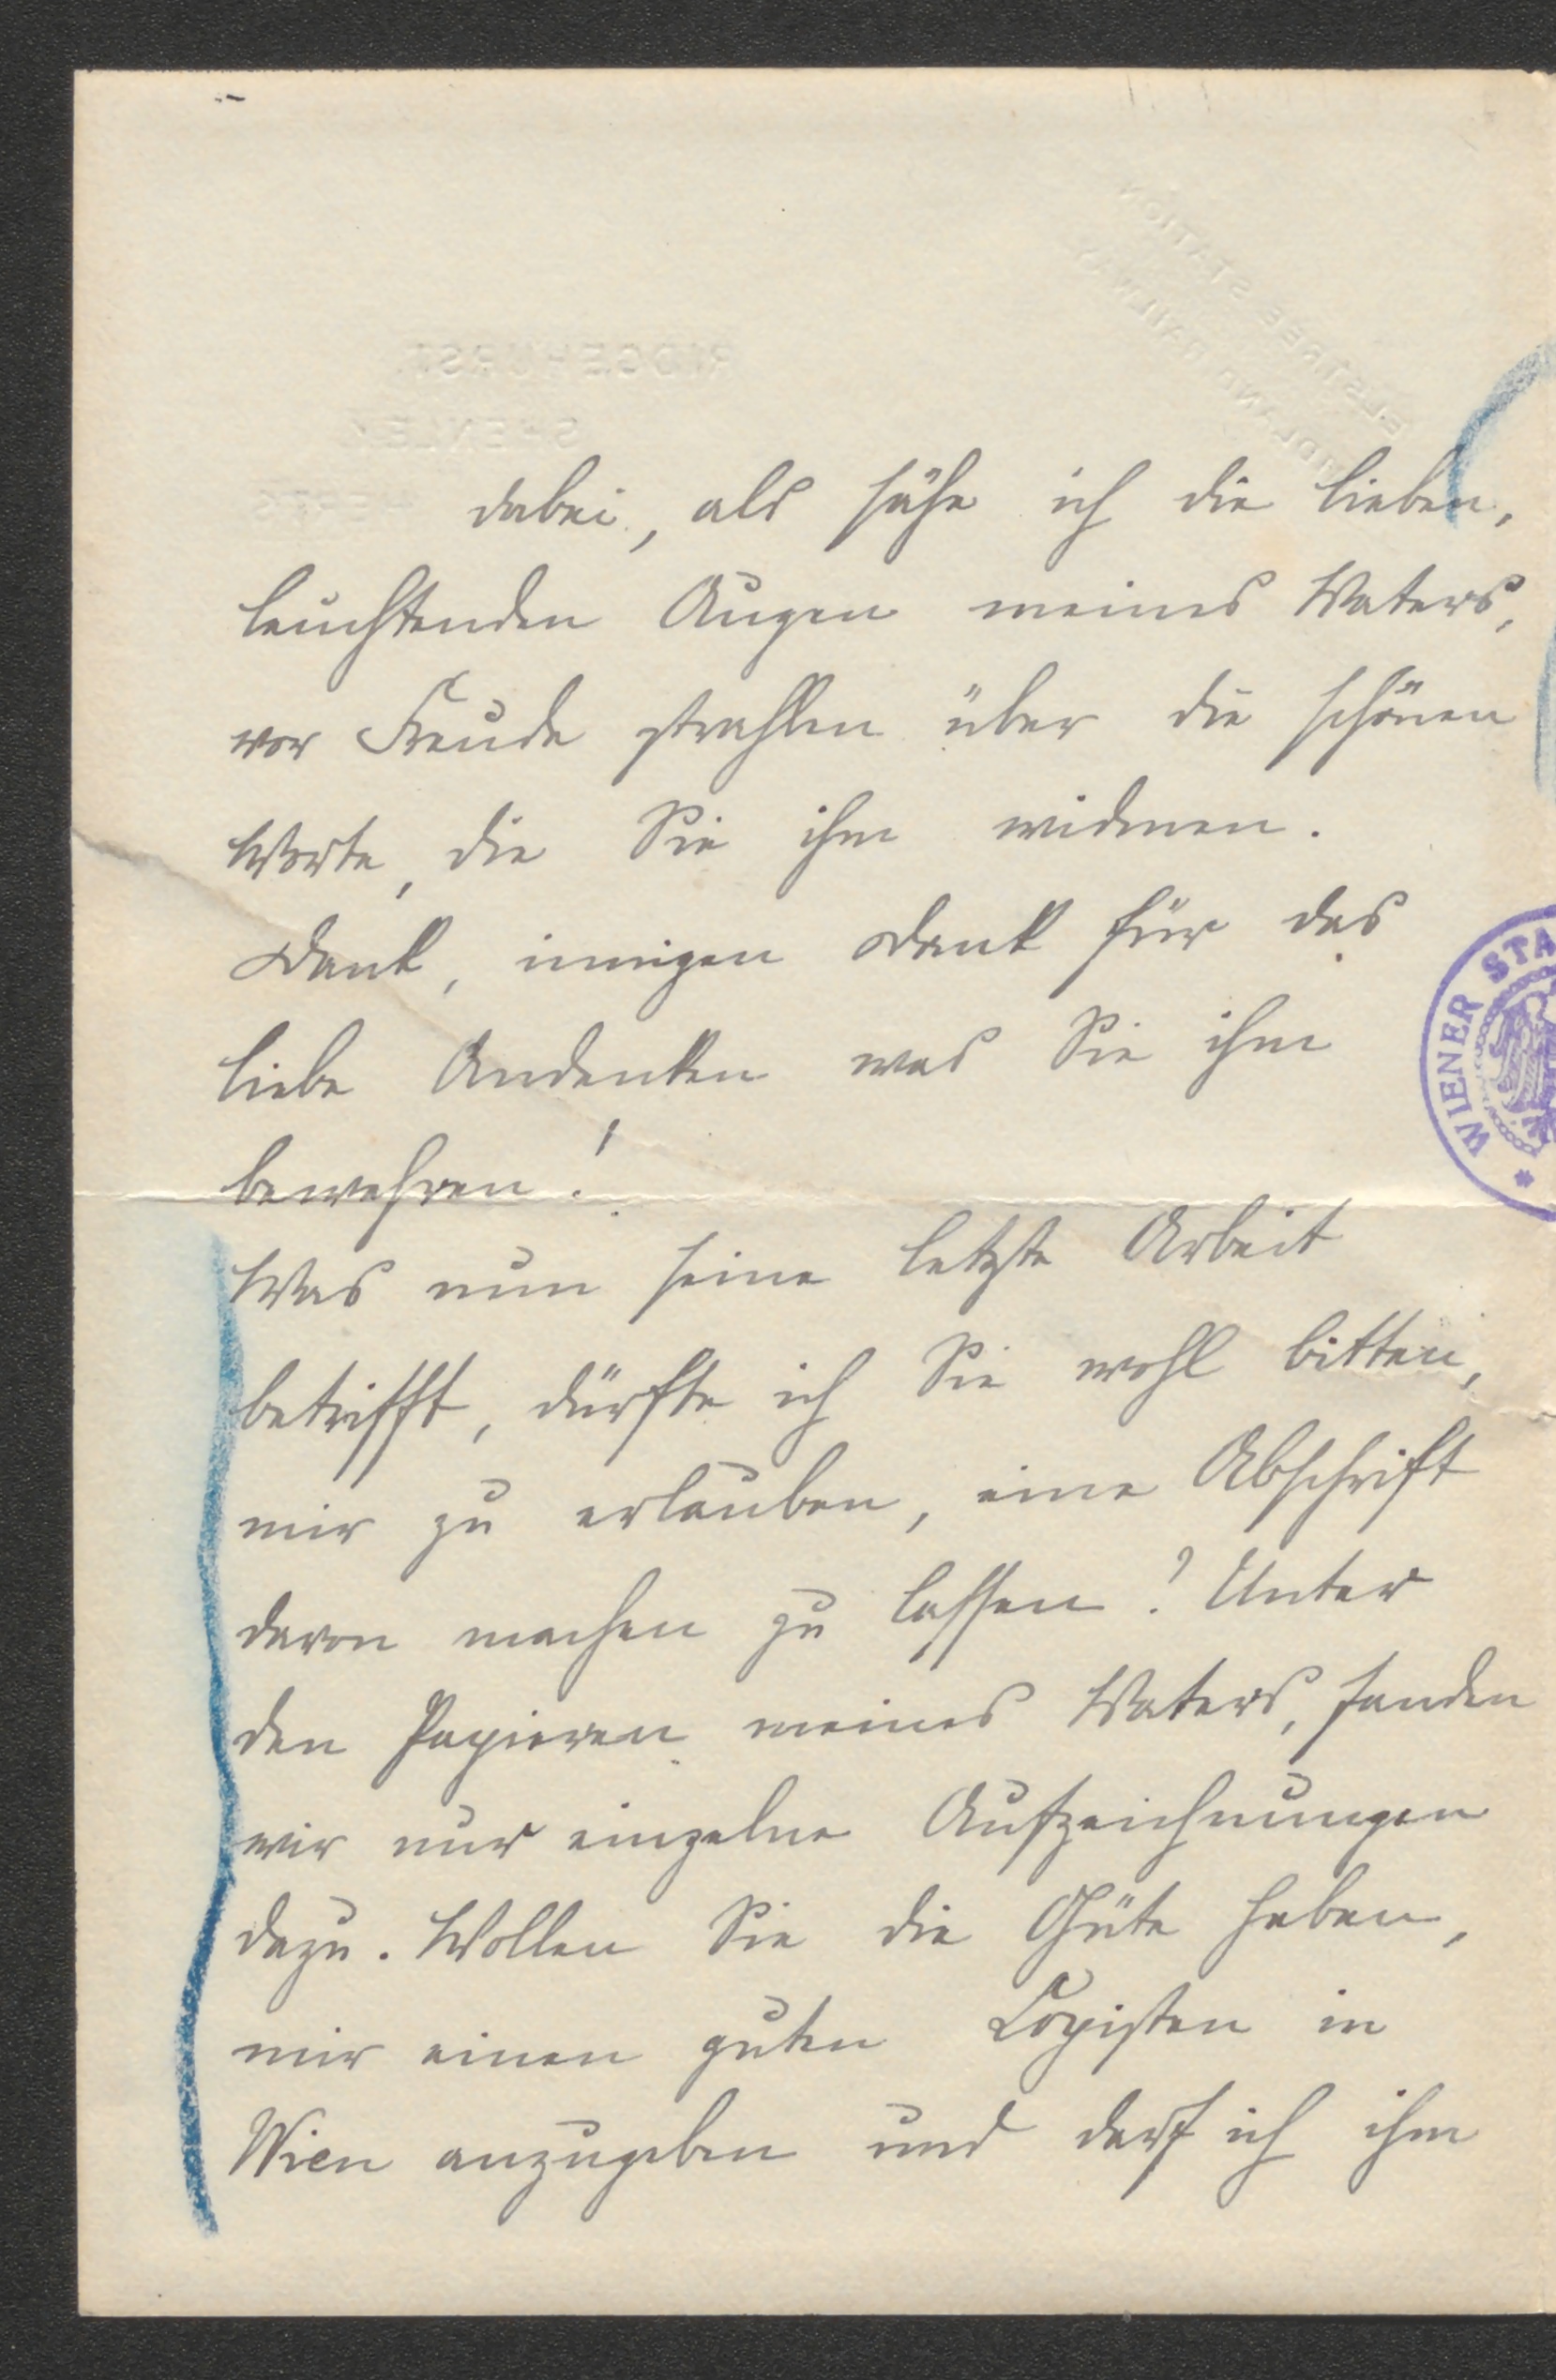 ELSTREE STATION
MIDLAND RAILWAY
RIDGEHURST
SHENLEY
HERTS
dabei, als sähe ich die lieben,
leuchtenden Augen meines Vaters,
vor Freude strahlen über die schönen
Worte, die Sie ihm widmen.
Dank, innigen Dank für das
liebe Andenken was Sie ihm
bewahren!
Was nun seine letzte Arbeit
betrifft, dürfte ich Sie wohl bitten,
mir zu erlauben, eine Abschrift
davon machen zu lassen? Unter
den Papieren meines Vaters, fanden
wir nur einzelne Aufzeichnungen
dazu. Wollen Sie die Güte haben,
mir einen guten Copisten in
Wien anzugeben und darf ich ihm
WIENER STA